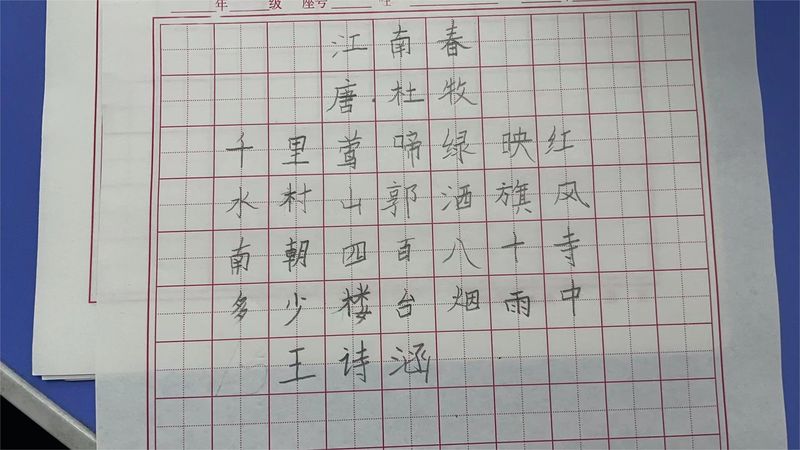 年 级 座号
江南春
唐·杜牧
千里莺啼绿映红
水村山郭酒旗风
南朝四百八十寺
多少楼台烟雨中
王诗涵